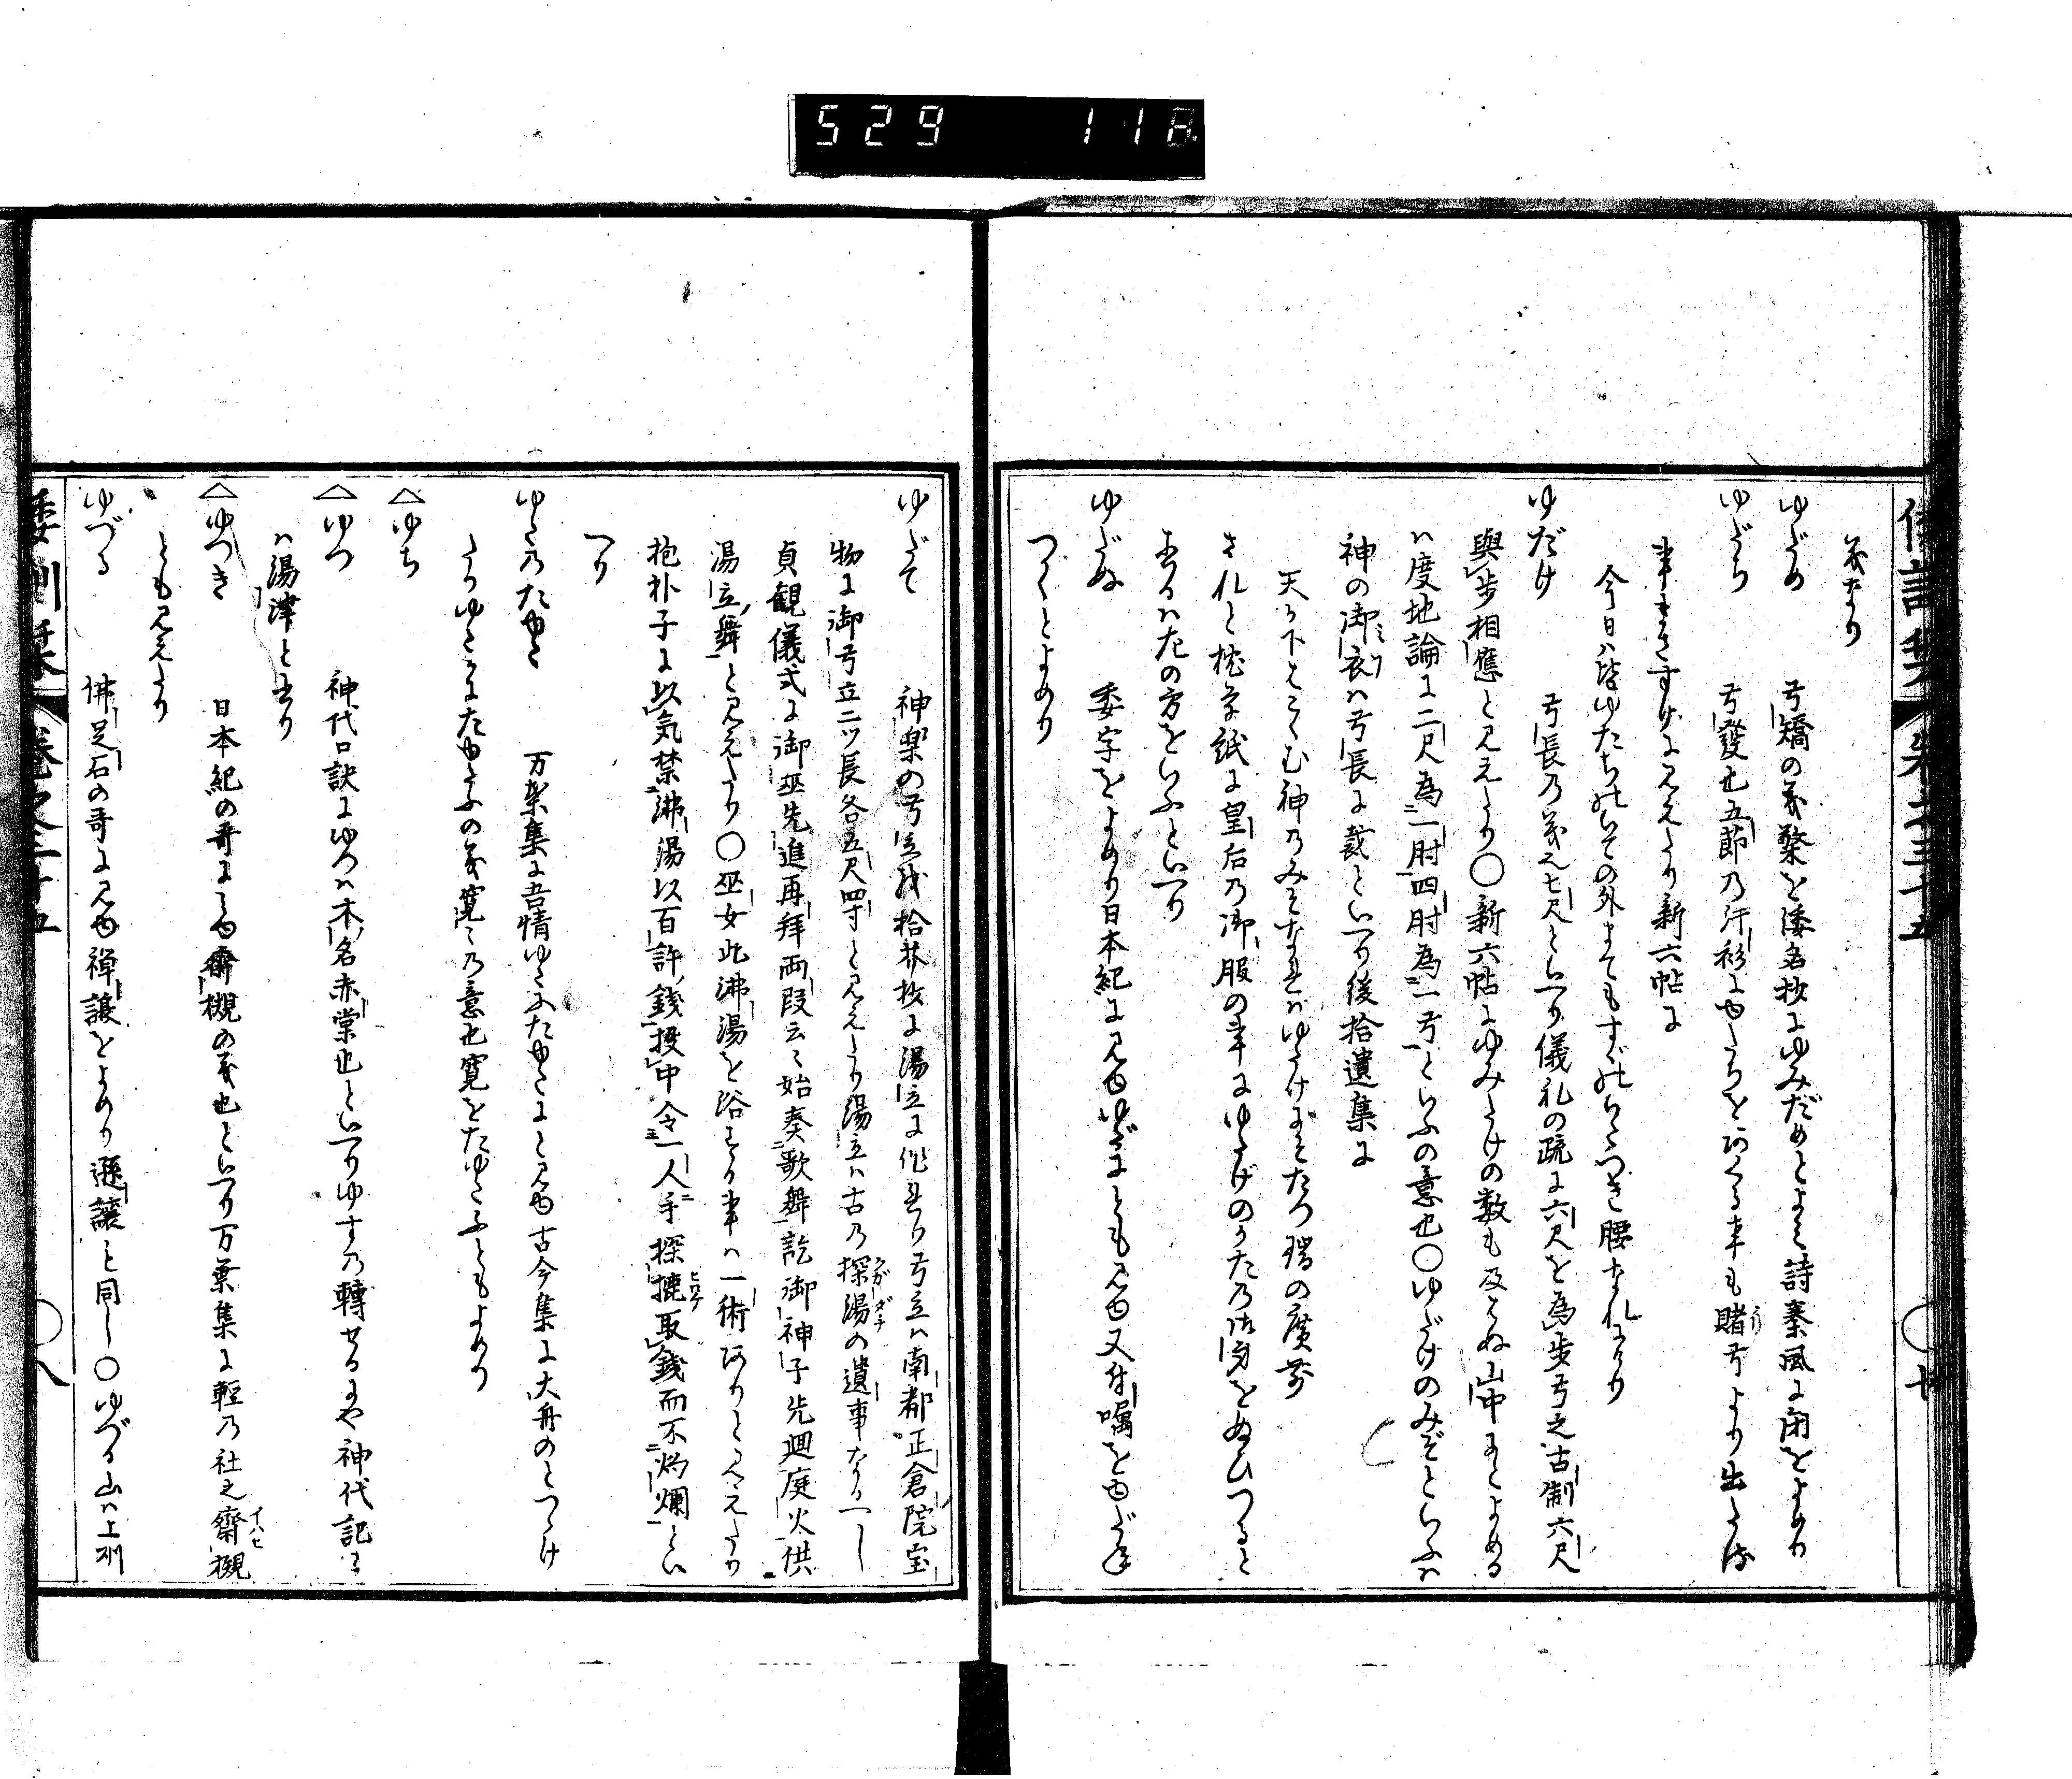 529 118
義なり
ゆだめ 弓矯の義檠を倭名抄にゆみだめとよミ詩秦風に閉をよめり
ゆだち 弓發也五節の汗衫にゆだちをあくる事も賭弓より出たる
事まさすけに見えたり新六帖に
今日ハ皆ゆたち
ゆだけ 弓長の義也七尺といへり儀礼の疏に六尺を為歩弓之古制六尺
與歩相應と見えたり〇新六帖にゆみたけの数も及はぬ山中にとよめる
ハ度地論に二尺為一肘四肘為一弓といふの意也〇ゆだけのみぞといふハ
神の御衣ハ弓長に裁といへり後拾遺集に
天か下はこくむ神のみそなれハゆたけにそたつ瑞の廣前
されと枕草紙に皇后の御服の事にゆたけのかたの御身をぬひつると
あるハ左の方をいふといへり
ゆだぬ 委字をよめり日本紀に見ゆゆだにとも見ゆ又付囑をもゆだね
つくとよめり
ゆだて 神楽の弓立或拾芥抄に湯立に作れり弓立ハ南都正倉院宝
物に御弓立二ツ長各五尺四寸と見えたり湯立ハ古の探湯の遺事なるへし
貞観儀式に御巫先進再拜両段云々始奏歌舞訖御神子先廻庭火供
湯立舞と見えたり〇巫女此沸湯を浴する事ハ一術ありと見えたり
抱朴子に以気禁沸湯以百許銭投中令一人手探摝取銭而不灼爛とい
へり
ゆたのたゆた 万葉集に吾情ゆたにたゆたにと見ゆ古今集に大舟のとつゝけ
たりゆたかにたゆたふの義寛々の意也寛をたゆたふともよめり
△ゆち
△ゆつ 神代口訣にゆつハ木名赤棠也といへりゆすの轉せるにや神代記に
ハ湯津と書り
△ゆつき 日本紀の哥にミゆ齋槻の義也といへり万葉集に軽の社之齋槻
とも見えたり
ゆづる 佛足石の哥に見ゆ禅譲をよめり遜讓も同し〇ゆづる山ハ上州
倭訓栞 巻之三十五 〇八